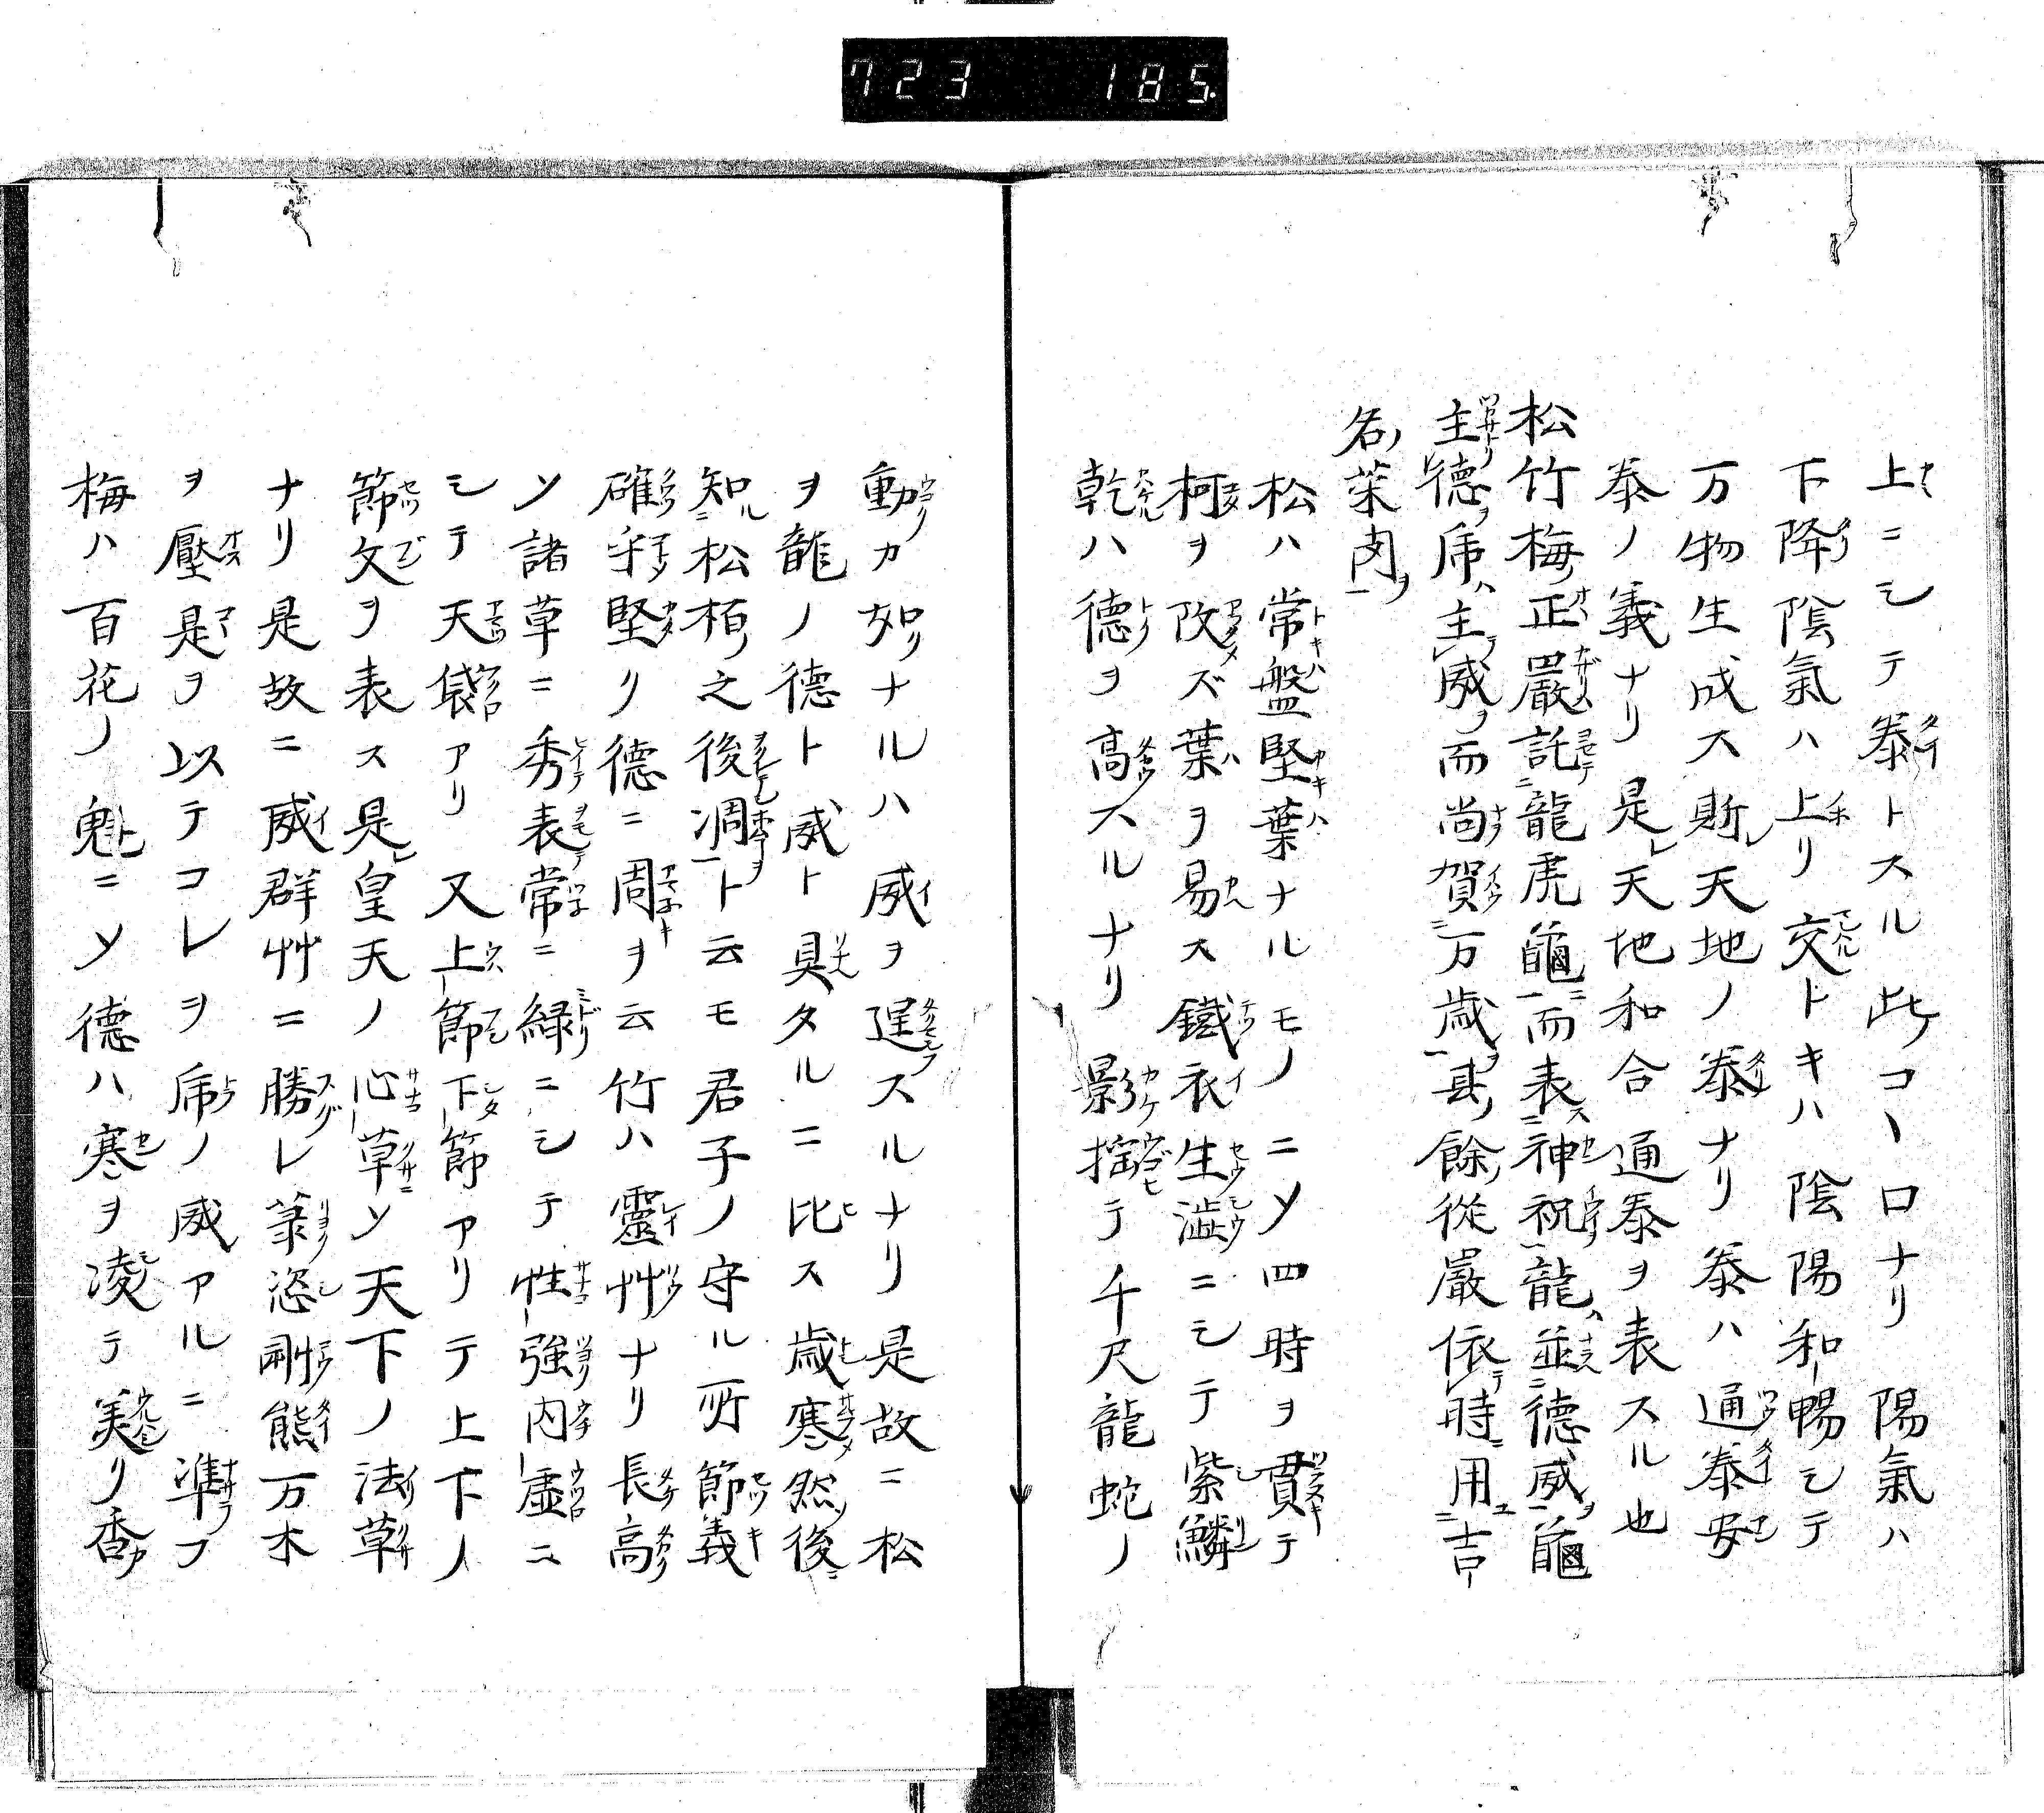 723 185
上ニシテ泰トスル此コヽロナリ陽氣ハ
下降陰氣ハ上リ交トキハ陰陽和暢シテ
万物生成ス斯天地ノ泰ナリ泰ハ通泰安
泰ノ義ナリ是レ天地和合通泰ヲ表スル也
松竹梅正嚴託龍虎龜而表神祝龍並德威龜
主德乕主威而尚賀万歳其餘從嚴依時用吉
名菜肉
松ハ常盤堅葉ナルモノニソ四時ヲ貫テ
柯ヲ改ズ葉ヲ易ス鐵衣生澁ニシテ紫鱗
乾ハ德ヲ高スルナリ影揺テ千尺龍蛇ノ
動カ如ナルハ威ヲ逞スルナリ是故ニ松
ヲ龍ノ德ト威ト具タルニ比ス歳寒然後
知松栢之後凋ト云モ君子ノ守ル所節義
確乎堅リ德ニ周ヲ云竹ハ靈艸ナリ長高
ソ諸草ニ秀表常ニ緑ニシテ性強内虚ニ
シテ天袋アリ又上節下節アリテ上下ノ
節文ヲ表ス是皇天ノ心草ソ天下ノ法草
ナリ是故ニ威群艸ニ勝レ葇恣剛熊万木
ヲ壓是ヲ以テコレヲ乕ノ威アルニ準フ
梅ハ百花ノ魁ニソ德ハ寒ヲ凌テ美リ香